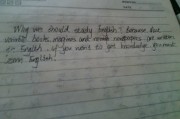 Why we should ready English? Because the
world books, magazines and news newspapers are written
in English. If you want to get knowledge, you must
learn English!